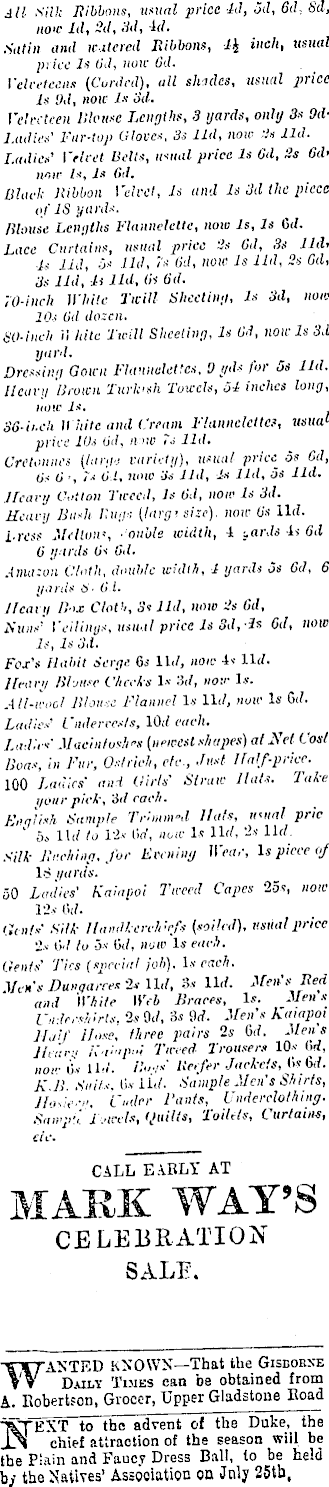 All Silk Ribbons, usual price 4d, 5d, 6d, 8d,
now 1d, 2d, 3d, 4d.
Satin and watered Ribbons, 4½ inch, usual
price 1s 6d, now 6d.
Velveteens (Corded), all shades, usual price
1s 9d, now 1s 3d.
Velveteen Blouse Lengths, 3 yards, only 3s 9d.
Ladies' Fur-top Gloves, 3s 11d, now 2s 11d.
Ladies' Velvet Belts, usual price 1s 6d, 2s 6d,
now 1s, 1s 6d.
Black Ribbon Velvet, 1s and 1s 3d the piece
of 18 yards.
Blouse Lengths Flannelette, now 1s, 1s 6d.
Lace Curtains, usual price 2s 6d, 3s 11d,
4s 11d, 5s 11d, 7s 6d, now 1s 11d, 2s 6d,
3s 11d, 4s 11d, 6s 6d.
70-inch White Twill Sheeting, 1s 3d, now
10s 6d dozen.
80-inch White Twill Sheeting, 1s 6d, now 1s 3d
yard.
Dressing Gown Flannelettes, 9 yds for 5s 11d.
Heavy Brown Turkish Towels, 54 inches long,
now 1s.
36-inch White and Cream Flannelettes, usual
price 10s 6d, now 7s 11d.
Cretonnes (large variety), usual price 5s 6d,
6s 6d, 7s 6d, now 3s 11d, 4s 11d, 5s 11d.
Heavy Cotton Tweed, 1s 6d, now 1s 3d.
Heavy Bush Rugs (large size), now 6s 11d.
Dress Meltons, double width, 4 yards 4s 6d
6 yards 6s 6d.
Amazon Cloth, double width, 4 yards 5s 6d, 6
yards 8s 6d.
Heavy Box Cloth, 3s 11d, now 2s 6d,
Nuns' Veilings, usual price 1s 3d, 1s 6d, now
1s, 1s 3d.
Fox's Habit Serge 6s 11d, now 4s 11d.
Heavy Blouse Checks 1s 3d, now 1s.
All-wool Blouse Flannel 1s 11d, now 1s 6d.
Ladies' Undervests, 10d each.
Ladies' Macintoshes (newest shapes) at Net Cost
Boas, in Fur, Ostrich, etc., Just Half-price.
100 Ladies' and Girls' Straw Hats. Take
your pick, 3d each.
English Sample Trimmed Hats, usual pric
5s 11d to 12s 6d, now 1s 11d, 2s 11d.
Silk Ruching, for Evening Wear, 1s piece of
18 yards.
50 Ladies' Kaiapoi Tweed Capes 25s, now
12s 6d.
Gents' Silk Handkerchiefs (soiled), usual price
2s 6d to 5s 6d, now 1s each.
Gents' Ties (special job), 1s each.
Men's Dungarees 2s 11d, 3s 11d. Men's Red
and White Web Braces, 1s. Men's
Undershirts, 2s 9d, 3s 9d. Men's Kaiapoi
Half Hose, three pairs 2s 6d. Men's
Heavy Kaiapoi Tweed Trousers 10s 6d,
now 6s 11d. Boys' Reefer Jackets, 6s 6d.
K.B. Suits, 6s 11d. Sample Men's Shirts,
Hosiery, Under Pants, Underclothing.
Sample Towels, Quilts, Toilets, Curtains,
etc.
CALL EARLY AT
MARK WAY'S
CELEBRATION
SALE.
WANTED KNOWN—That the GISBORNE
DAILY TIMES can be obtained from
A. Robertson, Grocer, Upper Gladstone Road
NEXT to the advent of the Duke, the
chief attraction of the season will be
the Plain and Fancy Dress Ball, to be held
by the Natives' Association on July 25th.